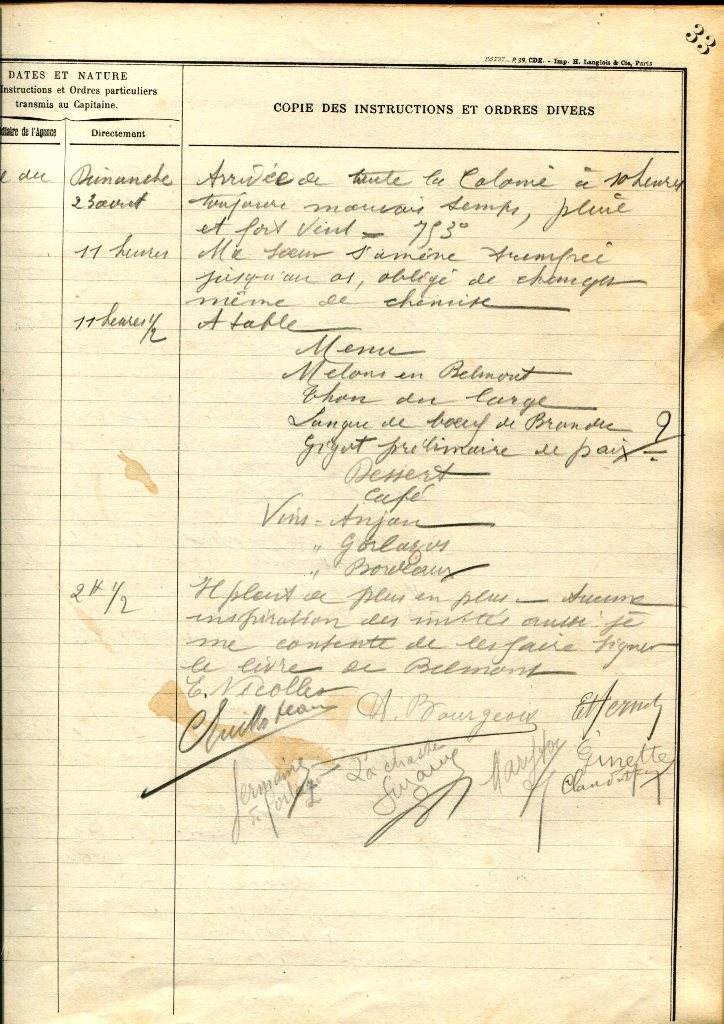 33
P. 39. CDE. - Imp. H. Langlois & Cie, Paris
DATES ET NATURE
Instructions et Ordres particuliers
transmis au Capitaine.
COPIE DES INSTRUCTIONS ET ORDRES DIVERS
diaire de l'Agence Directement
e du Dimanche Arrivée de toute la Colonie à 10 heures
23 aout toujours mauvais temps, pluie
et fort vent - 753°
11 heures Ma soeur s'amène trempée
jusqu'au os, obligé de changer
même de chemise
11 heures 1/2 A table
Menu
Melons en Belmont
Thon du large
Langue de bœuf de Brandre
Gigot préliminaire de paix ?
Dessert
Café
Vins = Anjou
" Gorlazos
" Bordeaux
2H 1/2 Il pleut de plus en plus - Aucune
inspiration des invités aussi je
me contente de les faire signer
le livre de Belmont
E. Nicolleo
Guilloteau A. Bourgeois E. Hernot
Germaine La chatte Ginette